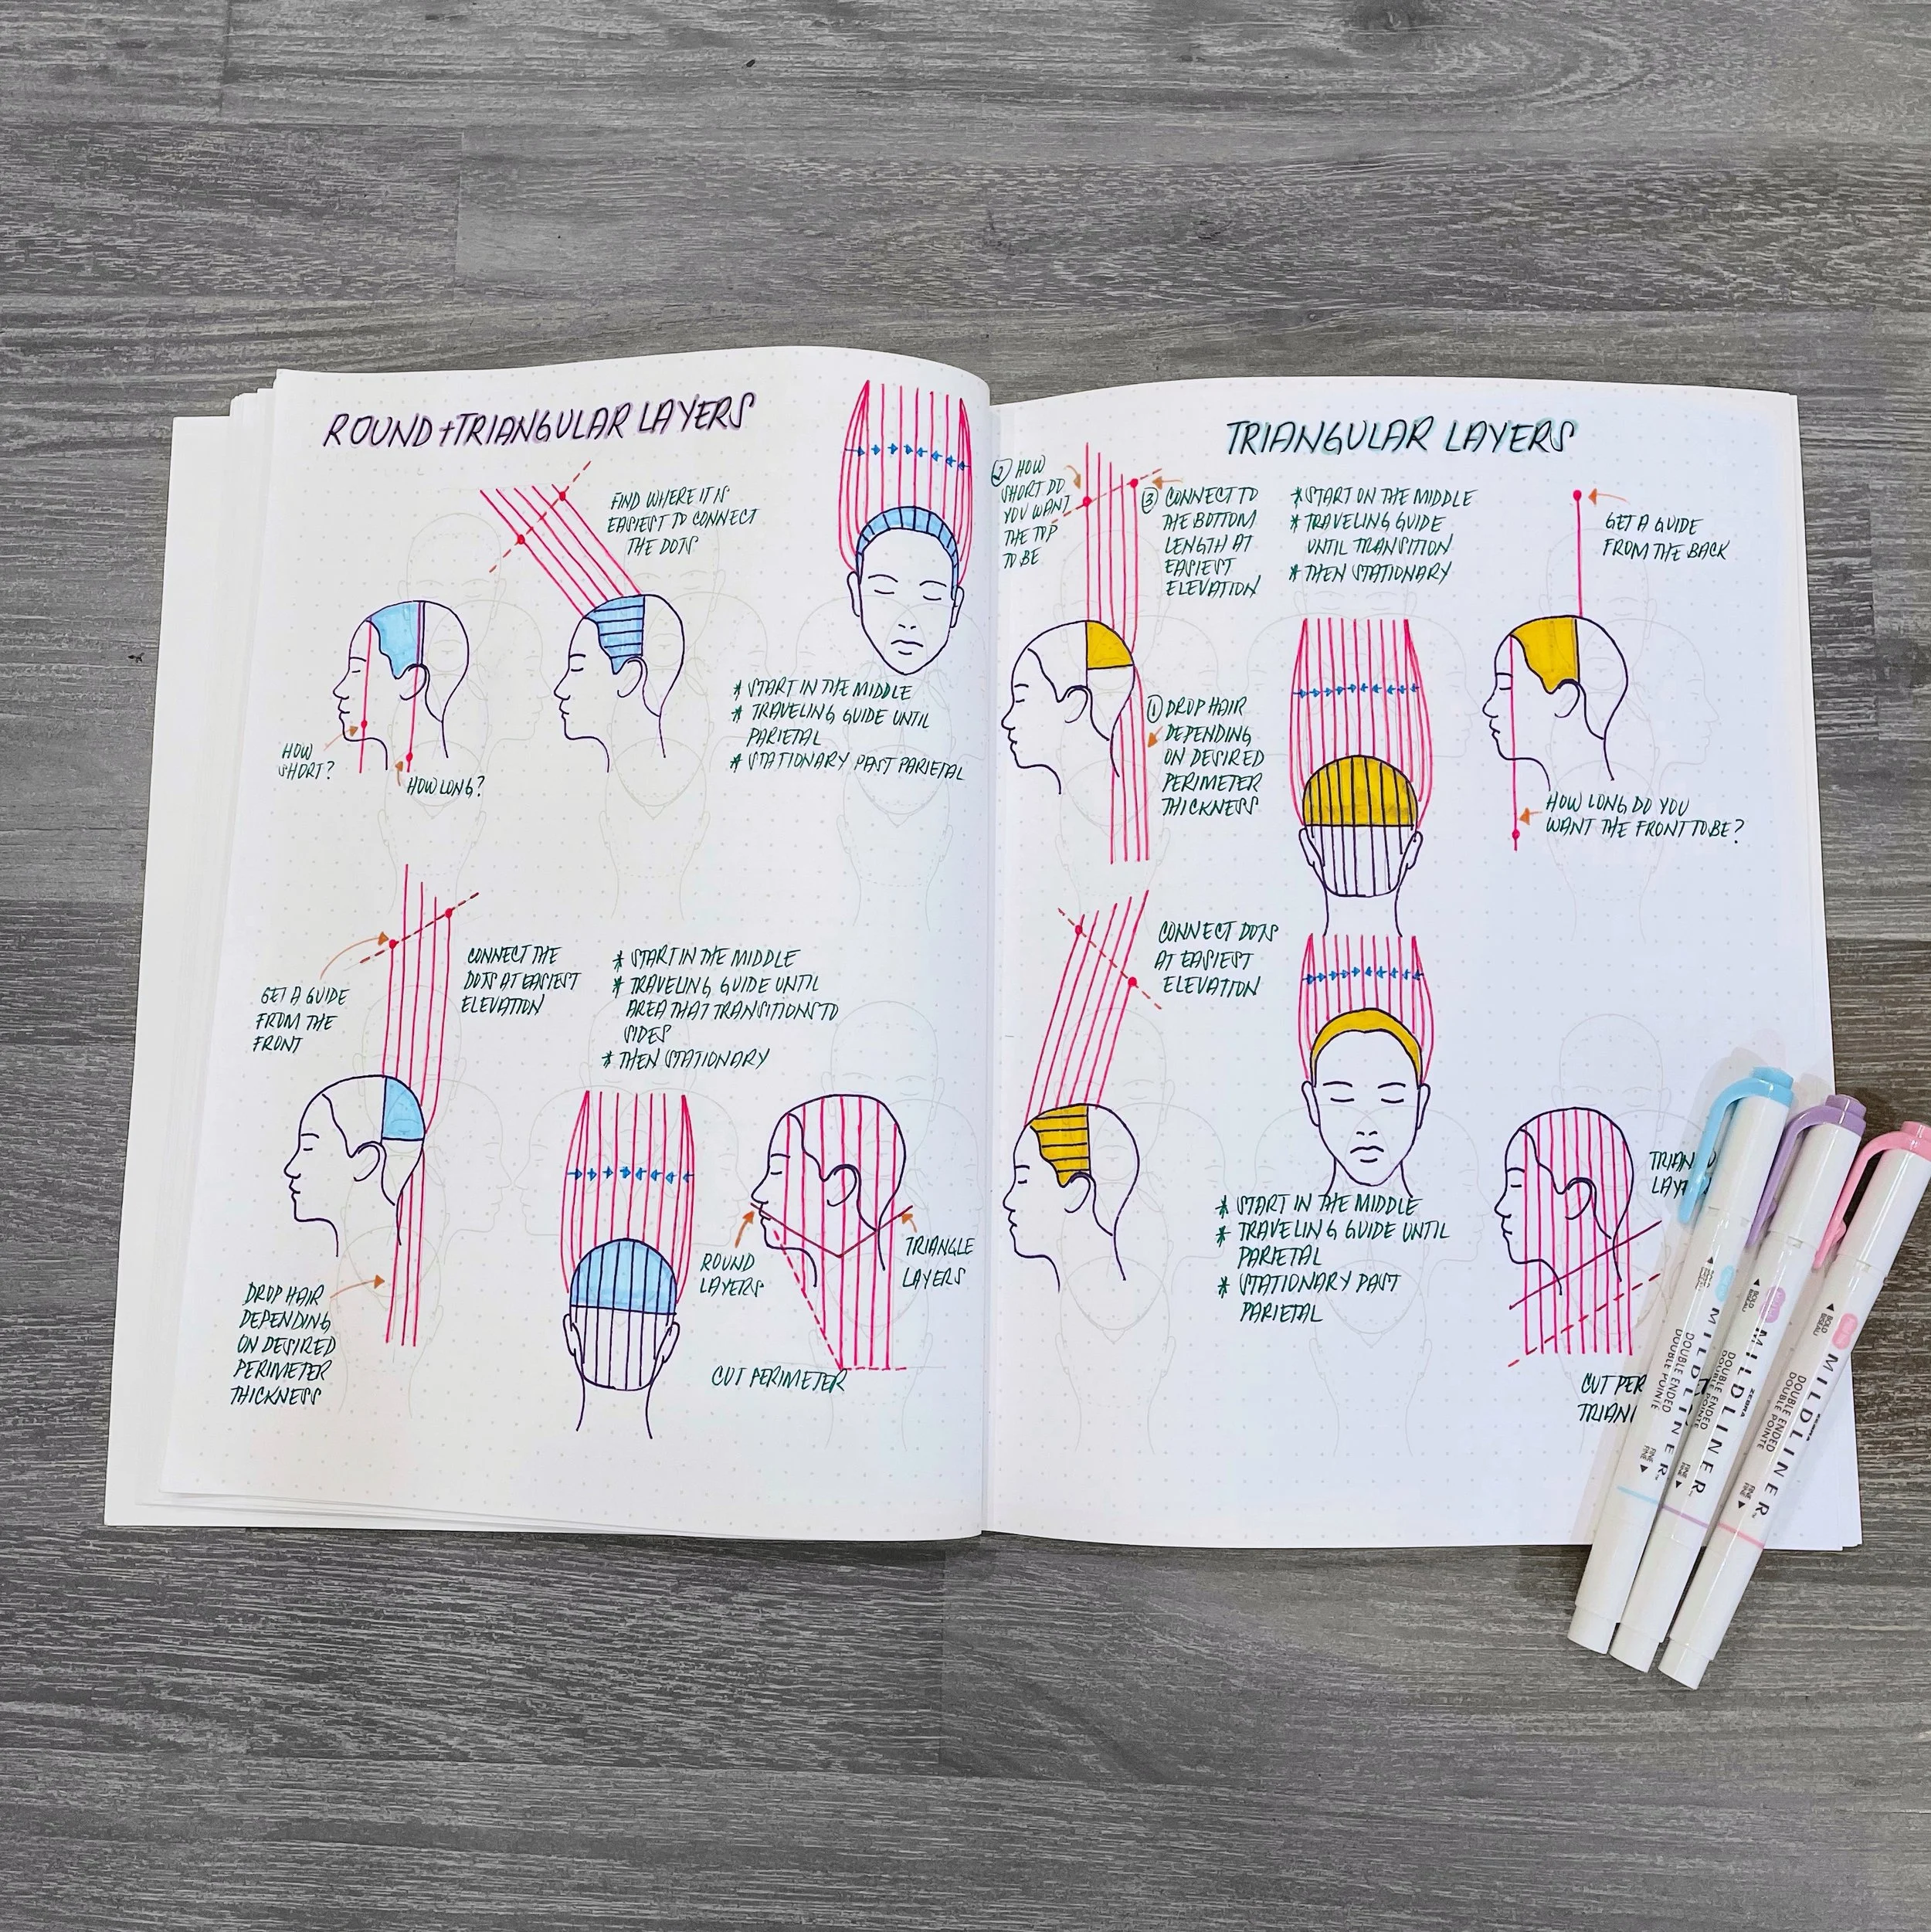 ROUND + TRIANGULAR LAYERS
FIND WHERE IT IS
EASIEST TO CONNECT
THE DOTS
HOW
SHORT?
HOW LONG?
* START IN THE MIDDLE
* TRAVELING GUIDE UNTIL
PARIETAL
* STATIONARY PAST PARIETAL
GET A GUIDE
FROM THE
FRONT
CONNECT THE
DOTS AT EASIEST
ELEVATION
* START IN THE MIDDLE
* TRAVELING GUIDE UNTIL
AREA THAT TRANSITIONS TO
SIDES
* THEN STATIONARY
DROP HAIR
DEPENDING
ON DESIRED
PERIMETER
THICKNESS
ROUND
LAYERS
TRIANGLE
LAYERS
CUT PERIMETER
TRIANGULAR LAYERS
② HOW
SHORT DO
YOU WANT
THE TOP
TO BE
③ CONNECT TO
THE BOTTOM
LENGTH AT
EASIEST
ELEVATION
* START ON THE MIDDLE
* TRAVELING GUIDE
UNTIL TRANSITION
* THEN STATIONARY
GET A GUIDE
FROM THE BACK
① DROP HAIR
DEPENDING
ON DESIRED
PERIMETER
THICKNESS
HOW LONG DO YOU
WANT THE FRONT TO BE?
CONNECT DOTS
AT EASIEST
ELEVATION
* START IN THE MIDDLE
* TRAVELING GUIDE UNTIL
PARIETAL
* STATIONARY PAST
PARIETAL
TRIAN
LAY
CUT PER
TRIAN
BOLD
ZEBRA MILDLINER
DOUBLE ENDED
DOUBLE POINTE
FINE
BOLD
ZEBRA MILDLINER
DOUBLE ENDED
DOUBLE POINTE
FINE
BOLD
ZEBRA MILDLINER
DOUBLE ENDED
DOUBLE POINTE
FINE